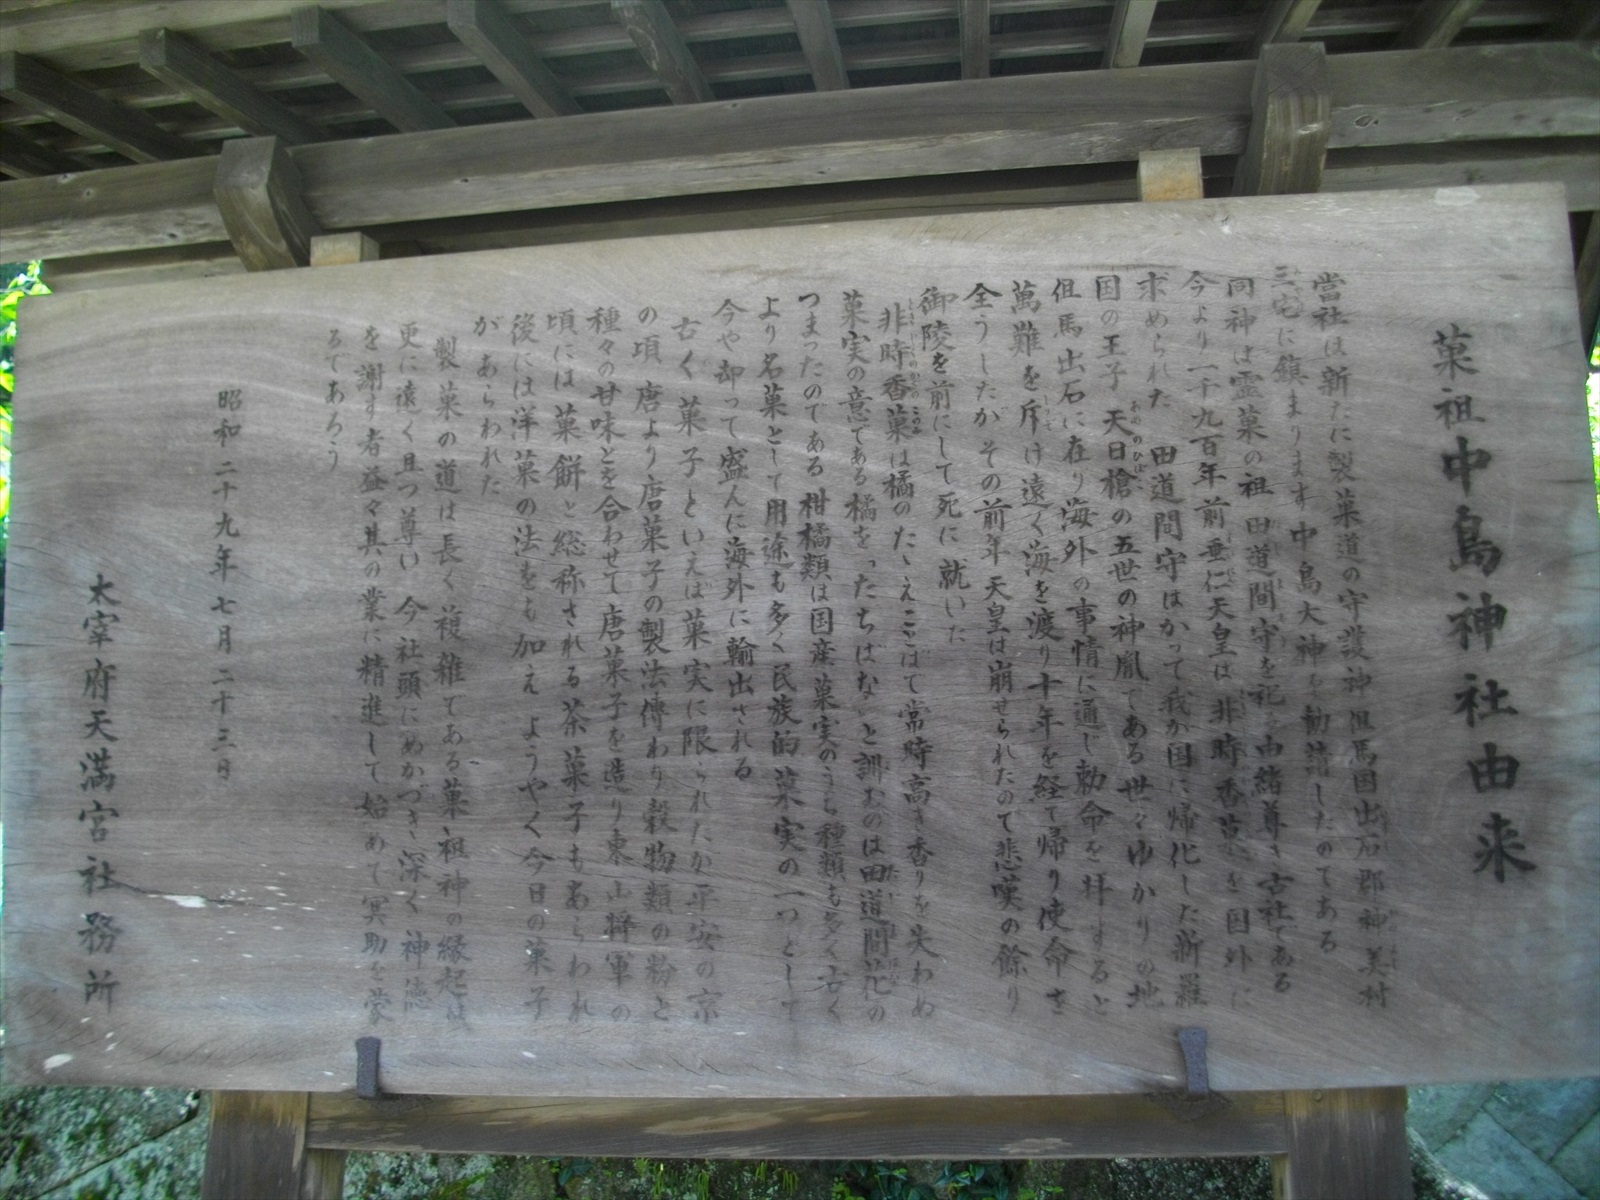 菓祖中島神社由来
當社は新たに製菓道の守護神但馬国出石郡神美村
三宅に鎮まります中島大神を勧請したのてある
同神は霊菓の祖 田道間守を祀る由緒尊き古社てある
今より一千九百年前垂仁天皇は 非時香菓を国外に
求められた 田道間守はかって我か国に帰化した新羅
国の王子 天日槍の五世の神胤てある世々ゆかりの地
但馬出石に在り海外の事情に通じ勅命を拝すると
萬難を斥け遠く海を渡り十年を経て帰り使命を
全うしたか その前年天皇は崩せられたのて悲嘆の餘り
御陵を前にして死に就いた
非時香菓は橘のたゝえことばて常時高き香りを失わぬ
菓実の意である橘を“たちばな”と訓むのは田道間花の
つまったのてある 柑橘類は国産菓実のうち種類も多く古く
より名菓として用途も多く民族的菓実の一つとして
今や却って盛んに海外に輸出される
古く菓子といえば菓実に限られたか平安の京
の頃 唐より唐菓子の製法傳わり穀物類の粉と
種々の甘味とを合わせて唐菓子を造り東山将軍の
頃には菓餅と総称される茶菓子もあらわれ
後には洋菓の法をも加え ようやく今日の菓子
があらわれた
製菓の道は長く複雑てある菓祖神の縁起は
更に遠く且つ尊い 今社頭にぬかづき深く神徳
を謝す者益々其の業に精進して始めて冥助を蒙
るてあろう
昭和二十九年七月二十三日
太宰府天満宮社務所